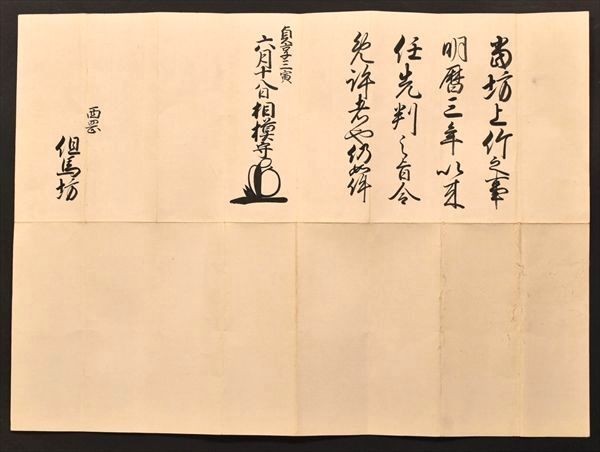 当坊上竹之事
明暦三年以来
任先判之旨令
免許者也仍如件
貞享三寅
六月十八日 相模守
西雲
但馬坊